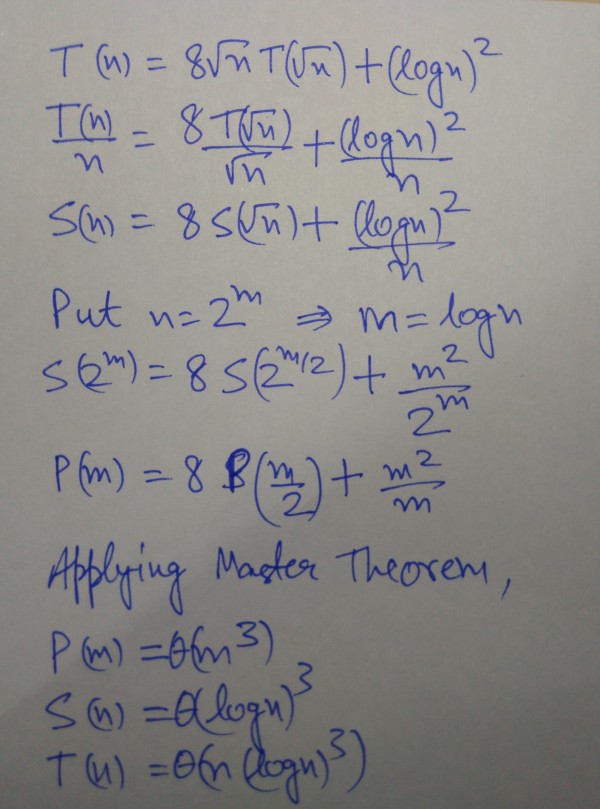 T(n) = 8√n T(√n) + (log n)²
T(n)/n = 8 T(√n)/√n + (log n)²/n
S(n) = 8 S(√n) + (log n)²/n
Put n = 2^m ⇒ m = log n
S(2^m) = 8 S(2^(m/2)) + m²/2^m
P(m) = 8 P(m/2) + m²/m
Applying Master Theorem,
P(m) = θ(m³)
S(n) = θ(log n)³
T(n) = θ(n (log n)³)